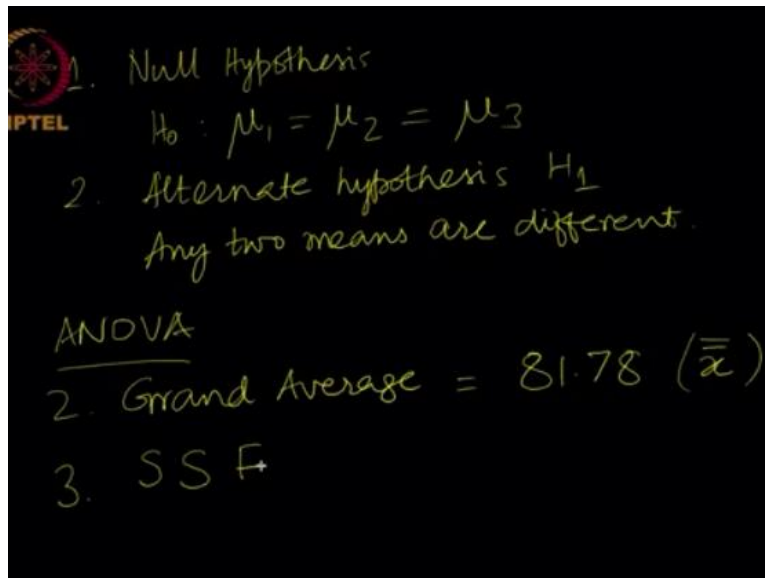 1. Null Hypothesis
IPTEL
H₀ : μ₁ = μ₂ = μ₃
2. Alternate hypothesis H₁
Any two means are different.
ANOVA
2. Grand Average = 81.78 (x̿)
3. SSF